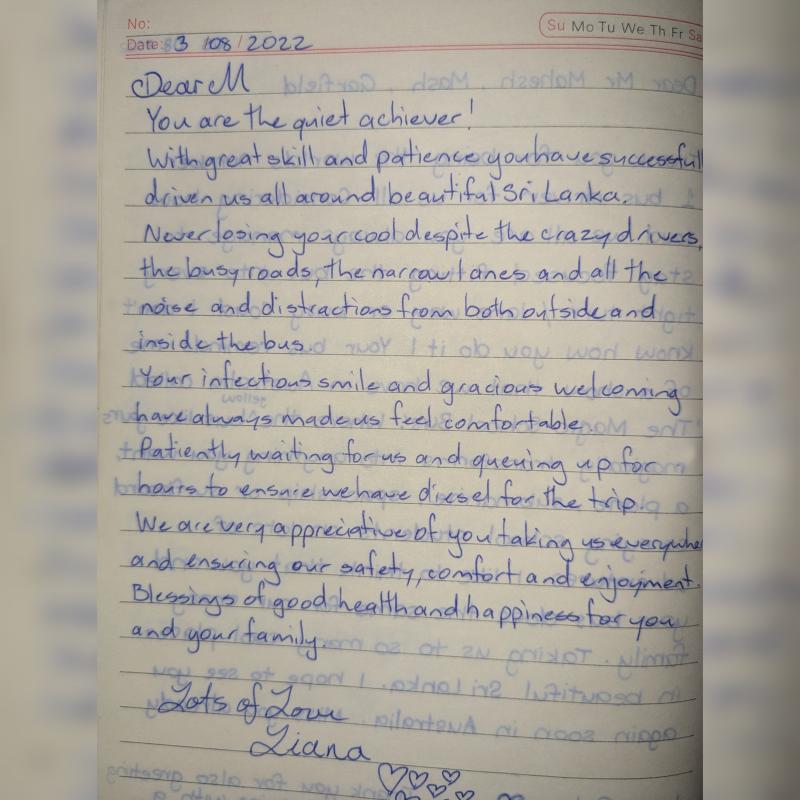 No:
Su Mo Tu We Th Fr Sa
Date: 3 /08/2022
Dear M
You are the quiet achiever!
With great skill and patience you have successfull
driven us all around beautiful Sri Lanka.
Never losing your cool despite the crazy drivers,
the busy roads, the narrow lanes and all the
noise and distractions from both outside and
inside the bus.
Your infectious smile and gracious welcoming
have always made us feel comfortable.
Patiently waiting for us and queuing up for
hours to ensure we have diesel for the trip.
We are very appreciative of you taking us everywhe
and ensuring our safety, comfort and enjoyment.
Blessings of good health and happiness for you
and your family.
Lots of Love
Liana